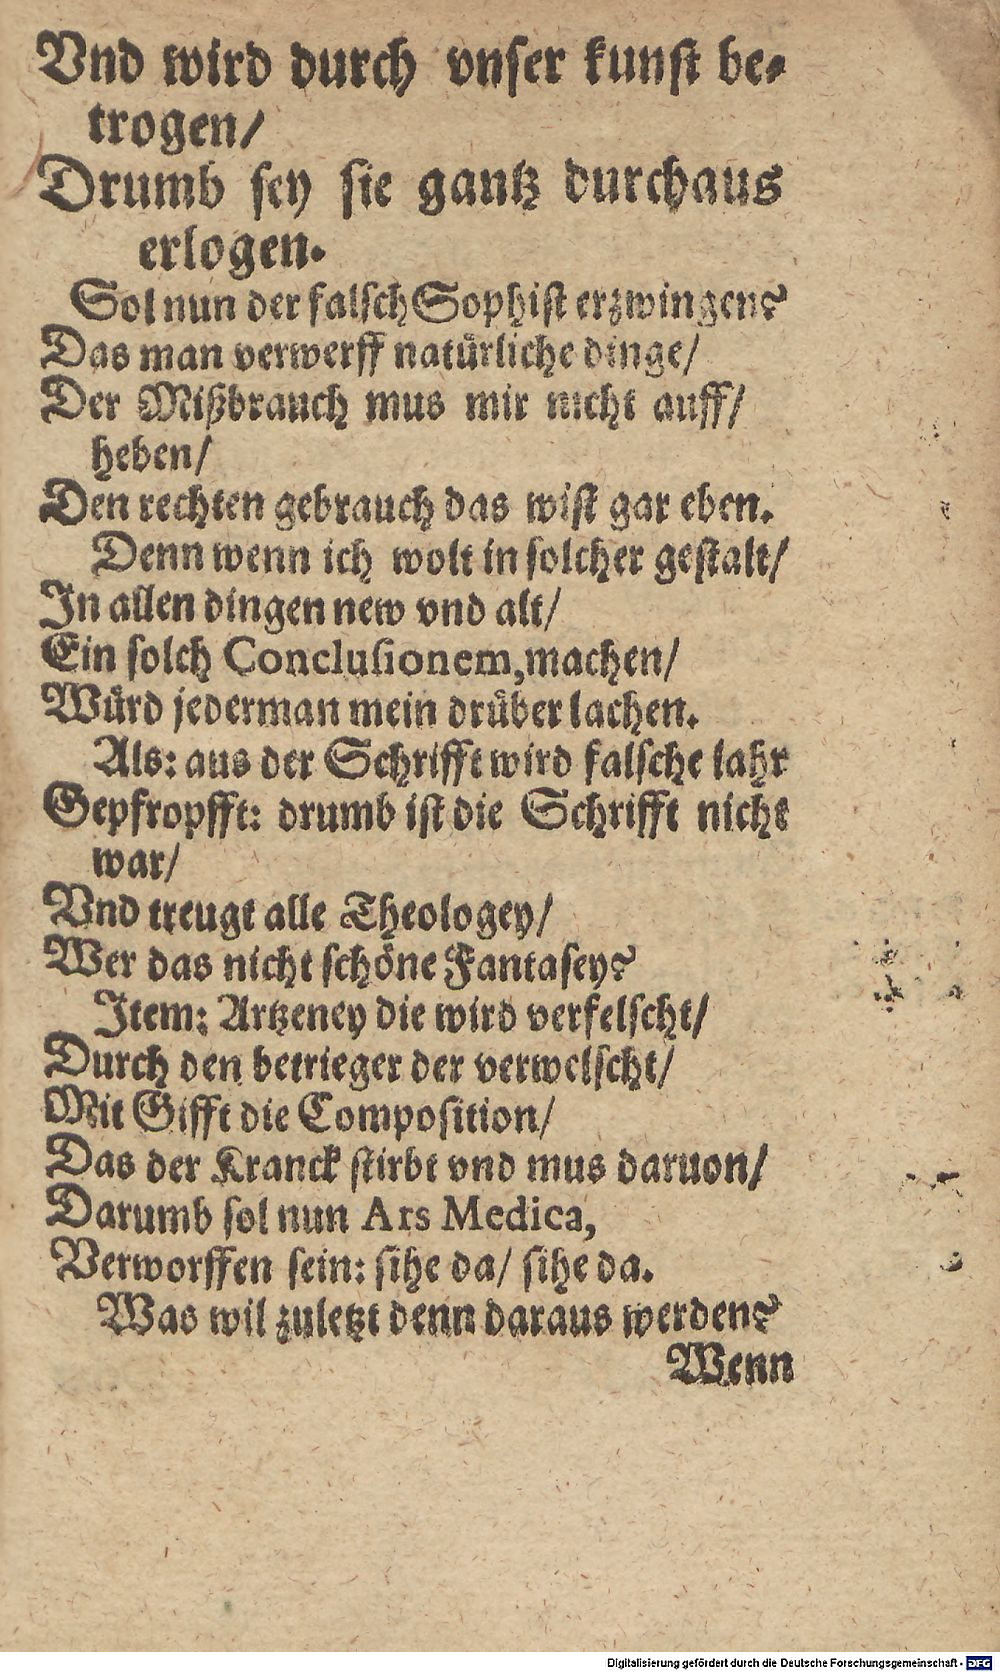 Vnd wird durch vnser kunst be-
trogen/
Drumb sey sie gantz durchaus
erlogen.
Sol nun der falsch Sophist erzwingen?
Das man verwerff natürliche dinge/
Der Mißbrauch mus mir nicht auff/
heben/
Den rechten gebrauch das wist gar eben.
Denn wenn ich wolt in solcher gestalt/
In allen dingen new vnd alt/
Ein solch Conclusionem, machen/
Würd jederman mein drüber lachen.
Als: aus der Schrifft wird falsche lahr
Gepfropfft: drumb ist die Schrifft nicht
war/
Vnd treugt alle Theologey/
Wer das nicht schöne Fantasey?
Item: Artzeney die wird verfelscht/
Durch den betrieger der verwelscht/
Mit Gifft die Composition/
Das der Kranck stirbt vnd mus daruon/
Darumb sol nun Ars Medica,
Verworffen sein: sihe da/ sihe da.
Was wil zuletzt denn daraus werden?
Wenn
Digitalisierung gefördert durch die Deutsche Forschungsgemeinschaft - DFG